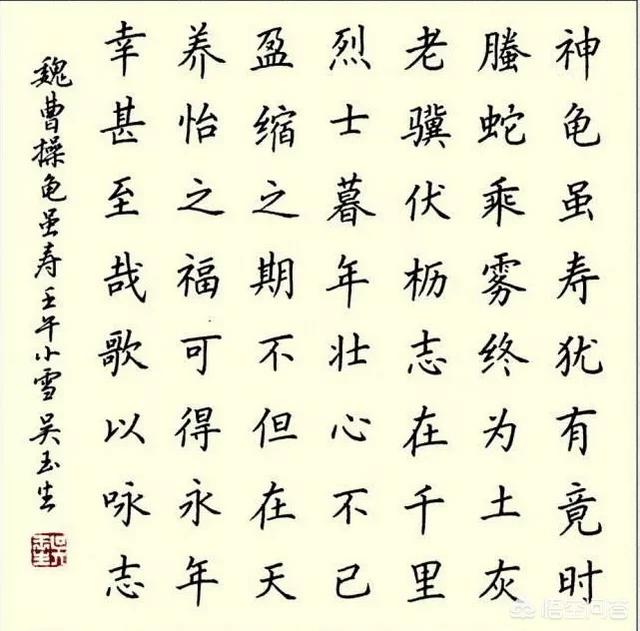 神龟虽寿犹有竟时
螣蛇乘雾终为土灰
老骥伏枥志在千里
烈士暮年壮心不已
盈缩之期不但在天
养怡之福可得永年
幸甚至哉歌以咏志
魏曹操龟虽寿壬午小雪吴玉生
悟空问答